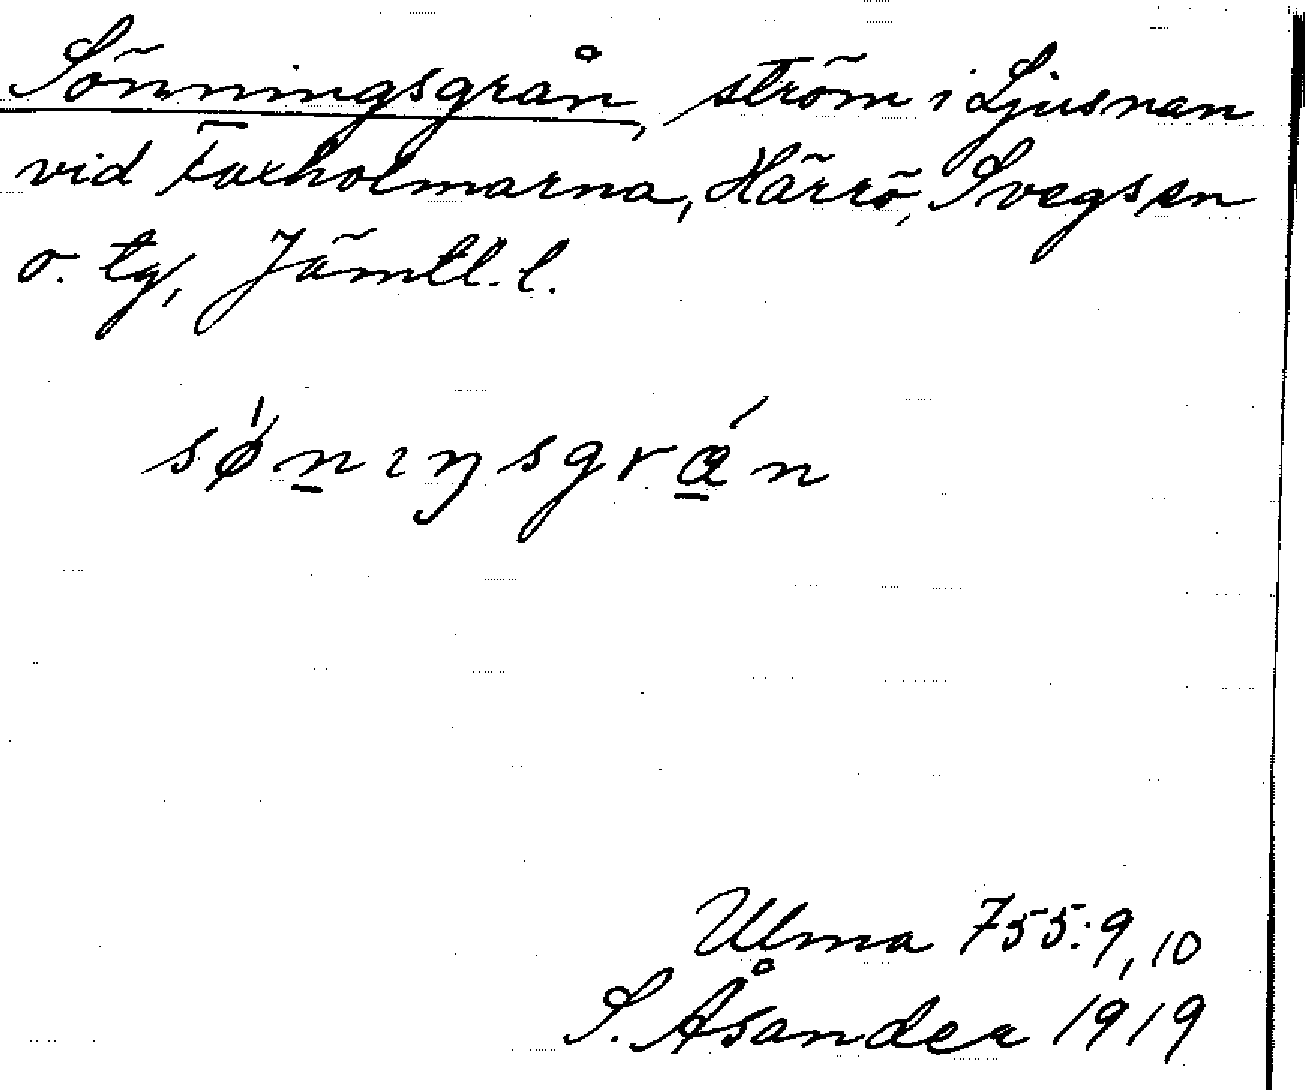 Sönningsgrån, ström i Ljusnan
vid Faxholmarna, Härrö, Svegs sn
o. tg, Jämtl. l.
sø̀n̲ıŋsgrá̲n
Ulma 755:9,10
S. Åsander 1919